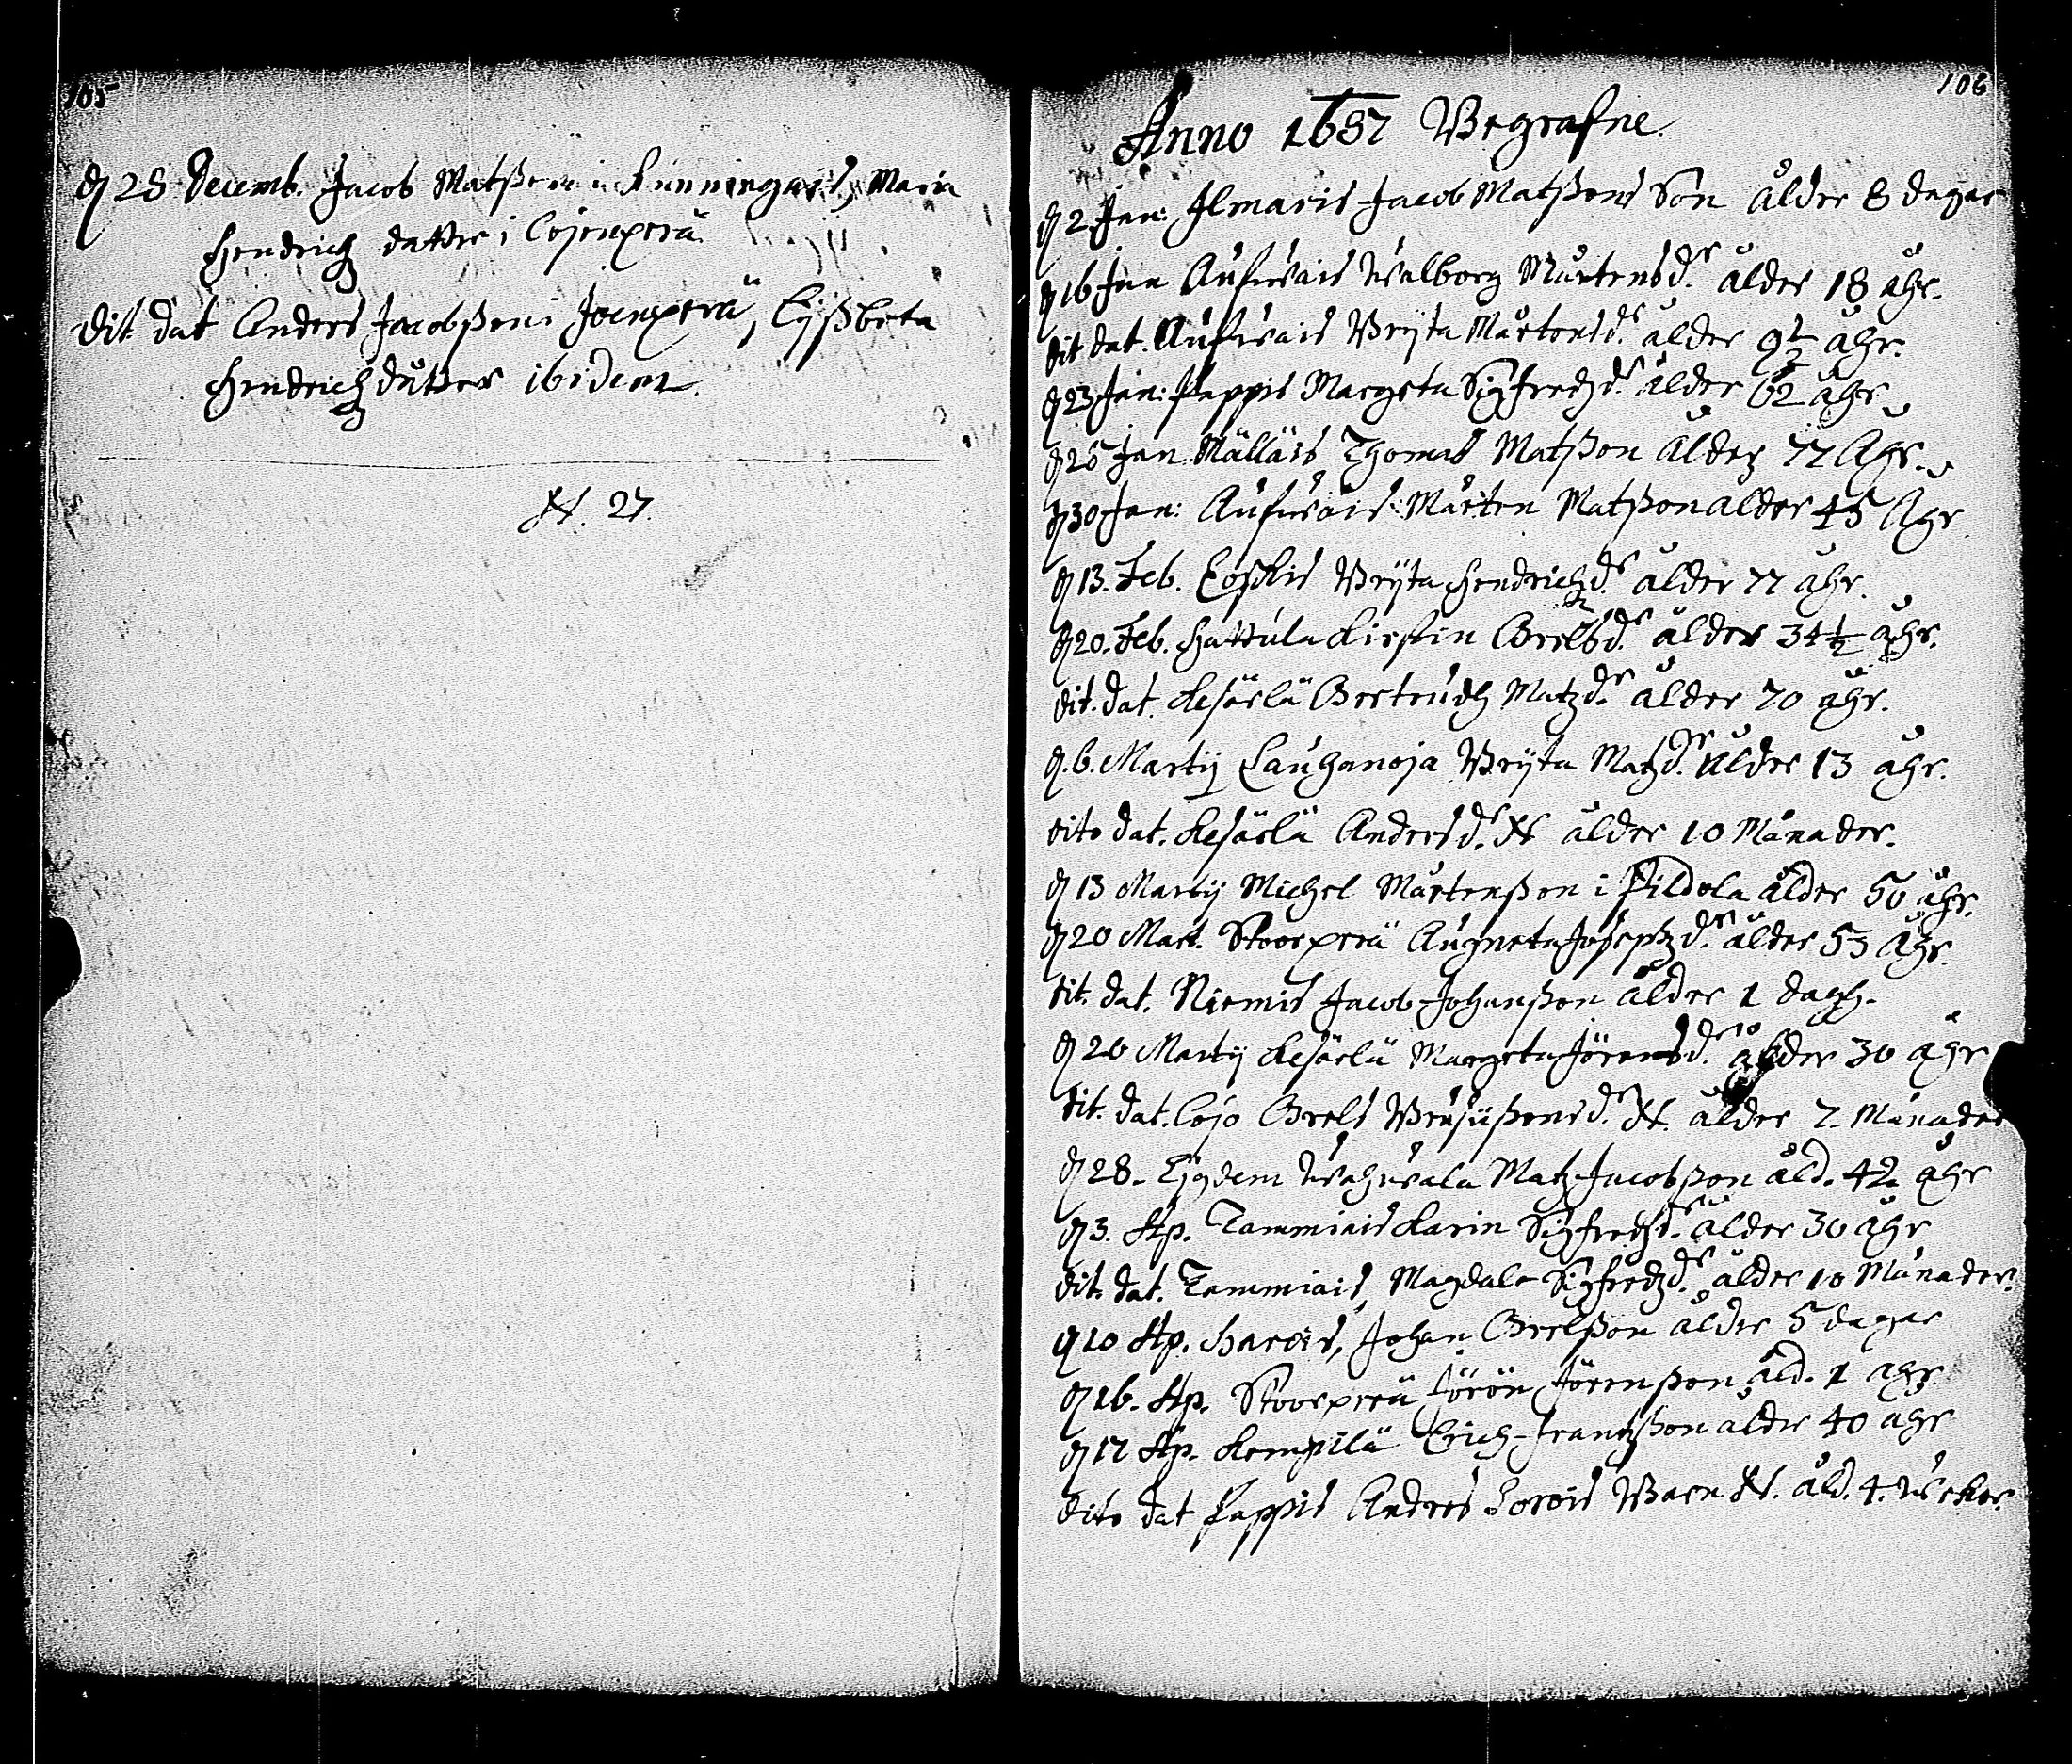 105
d 28 Decemb. Jacob Matßon i Kunningais, Maria
Hendrichz datter i Cojenperä
Dit. dat Anders Jacobßon i Joenperä, Lyßbeta
Hendrichz dåtter ibidem.
N. 27.
106
Anno 1687 Begrafne.
d 2 Jan: Ilmaris Jacob Matßons Son ålder 8 dagar
d 16 Jan Aufwais Walborg Mårtensdr. ålder 18 åhr.
dit dat. Aufwais Brijta Mårtensdr. ålder 9½ åhr.
d 23 Jan: Pappis Margeta Sigfredzdr. ålder 62 åhr
d 25 Jan Mälläis Thomas Matßon ålder 77 Åhr.
d 30 Jan: Aufwais: Mårten Matßon ålder 45 Åhr.
d 13. Feb. Coskis Brijta Hendrichzdr. ålder 77 åhr.
d 20. Feb. Hattula Kirstin Grelsdr. ålder 34½ åhr.
dit. dat. Kesäelä Gertrudh Matzdr. ålder 70 åhr.
d. 6. Martij Lauhanoja Brijta Matzdr. ålder 13 åhr.
dito dat. Kesäelä Andersdr. N ålder 10 Månader.
d 13 Martij Michel Mårtenßon i Pildola ålder 50 åhr.
d 20 Mart. Stoorperä Augneta Josephzdr. ålder 53 Åhr.
dit. dat. Niemis Jacob Johanßon ålder 1 dagh.
d 20 Martij Kesäelä Margeta Jörensdr. ålder 30 åhr
dit. dat. Cojo Grels Brusiußonsdr. N. ålder 7. Månader
d 28. Ejgdem Wahwala Matz Jacobßon åld. 42 åhr
d 3. Ap. Tammiais Karin Sigfredzdr. ålder 30 åhr
dit. dat. Tammiais, Magdale Sigfredzdr. ålder 10 Månader.
d 10 Ap. Harois, Johan Grelßon ålder 5 dagar
d 16. Ap. Stoorperä Jörön Jörenßon åld. 1 åhr
d 17 Ap. Kempilä Erich Frantzßon ålder 40 åhr
dito dat Pappis Andres Sorois Barn N. åld. 4. Wekor.